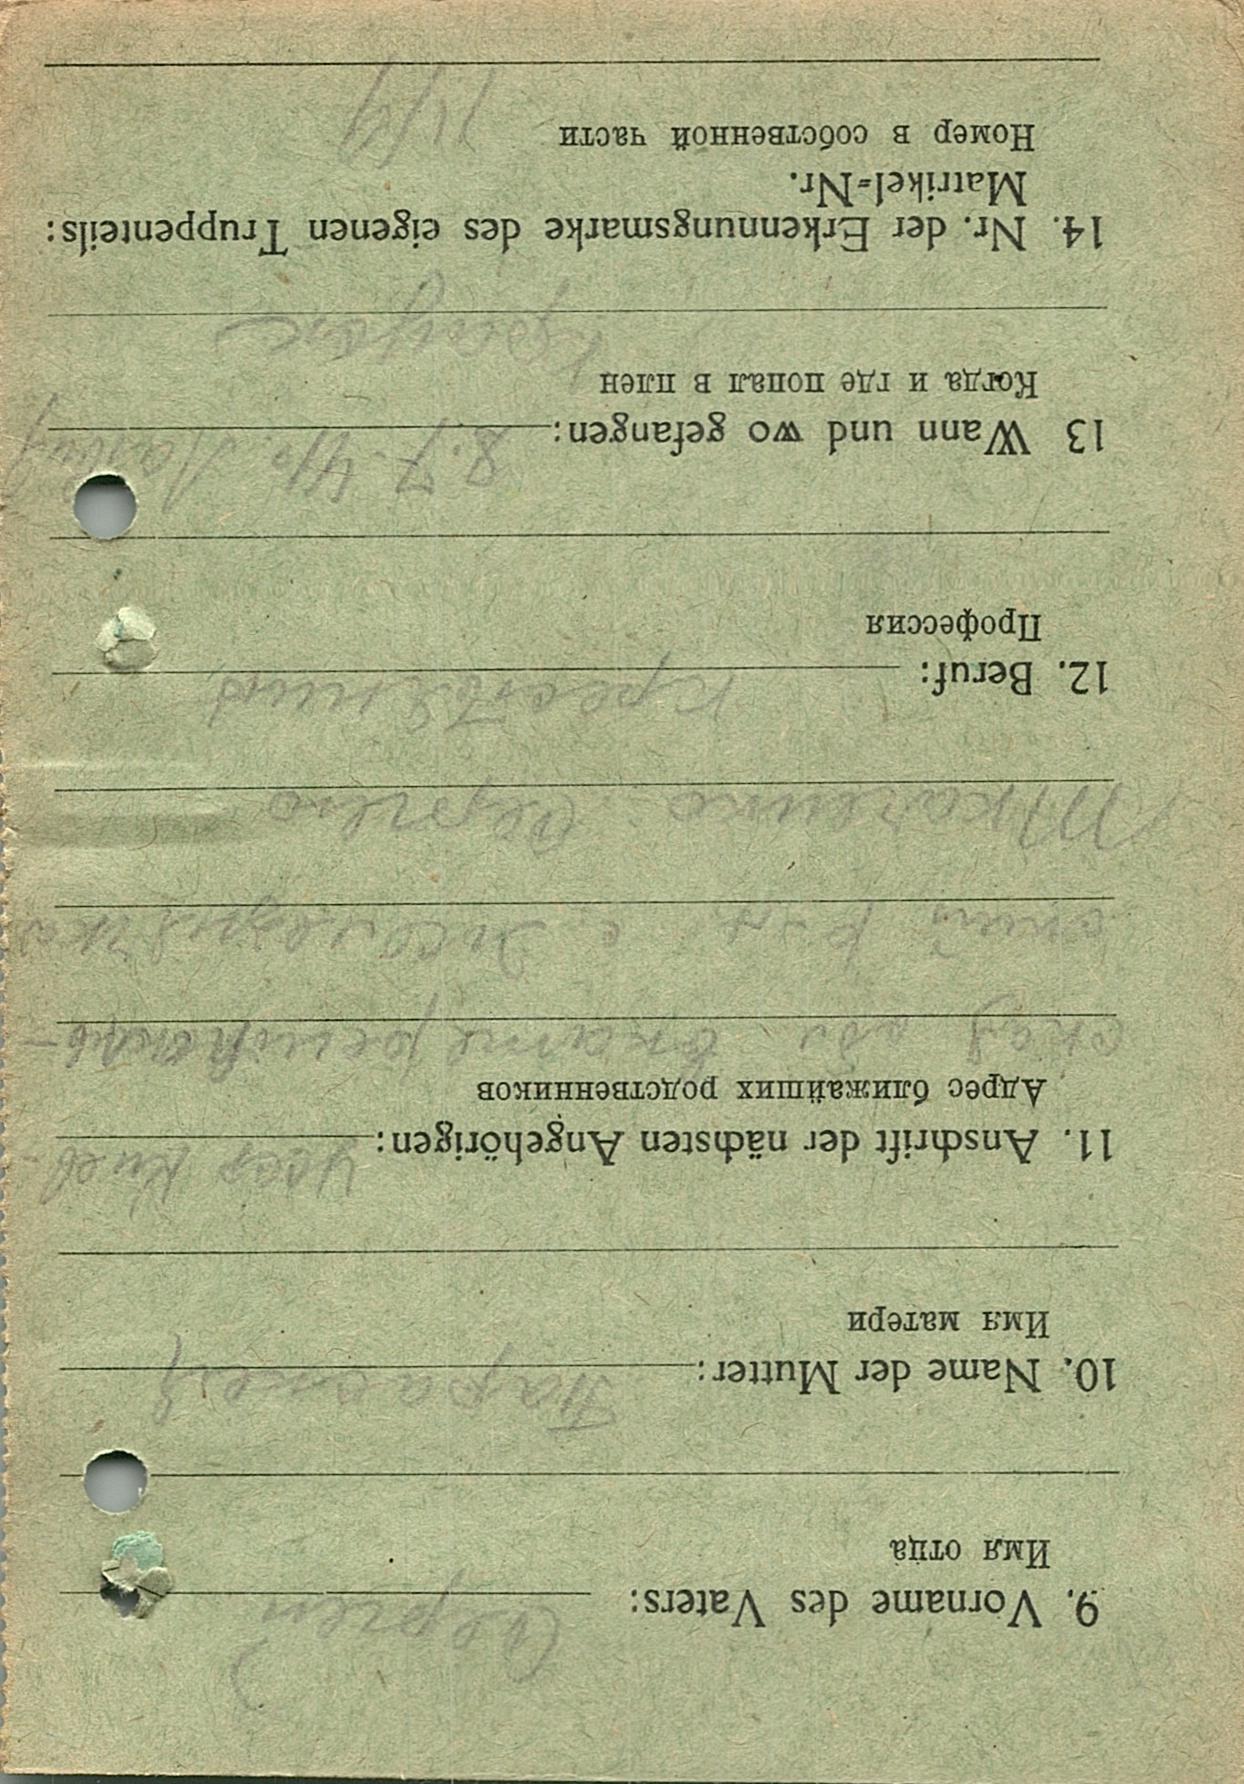 9. Vorname des Vaters: Сергей
Имя отца
10. Name der Mutter:
Имя матери
11. Anschrift der nächsten Angehörigen: Усср Киев
Адрес ближайших родственников
ская обл
с.
Ткаченко Сергею
12. Beruf: крестянин
Профессия
13 Wann und wo gefangen: 8.7 41
Когда и где попал в плен
14. Nr. der Erkennungsmarke des eigenen Truppenteils:
Matrikel=Nr.
Номер в собственной части